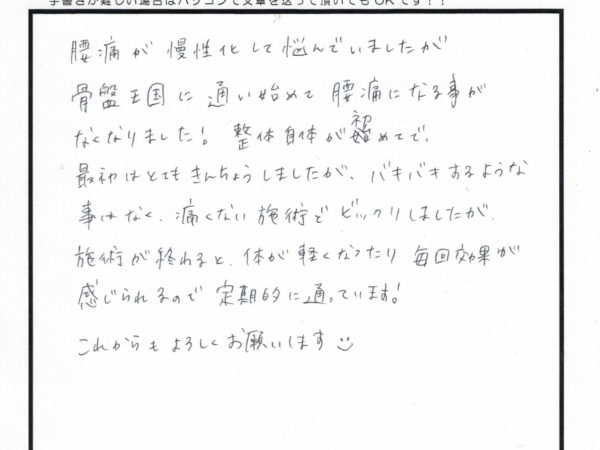 手書きが難しい場合はパソコンで文章を送って頂いてもOKです！！
腰痛が慢性化して悩んでいましたが
骨盤王国に通い始めて腰痛になる事が
なくなりました！整体自体が初めてで、
最初はとてもきんちょうしましたが、バキバキするような
事はなく、痛くない施術でビックリしましたが、
施術が終わると、体が軽くなったり毎回効果が
感じられるので定期的に通っています！
これからもよろしくお願いします